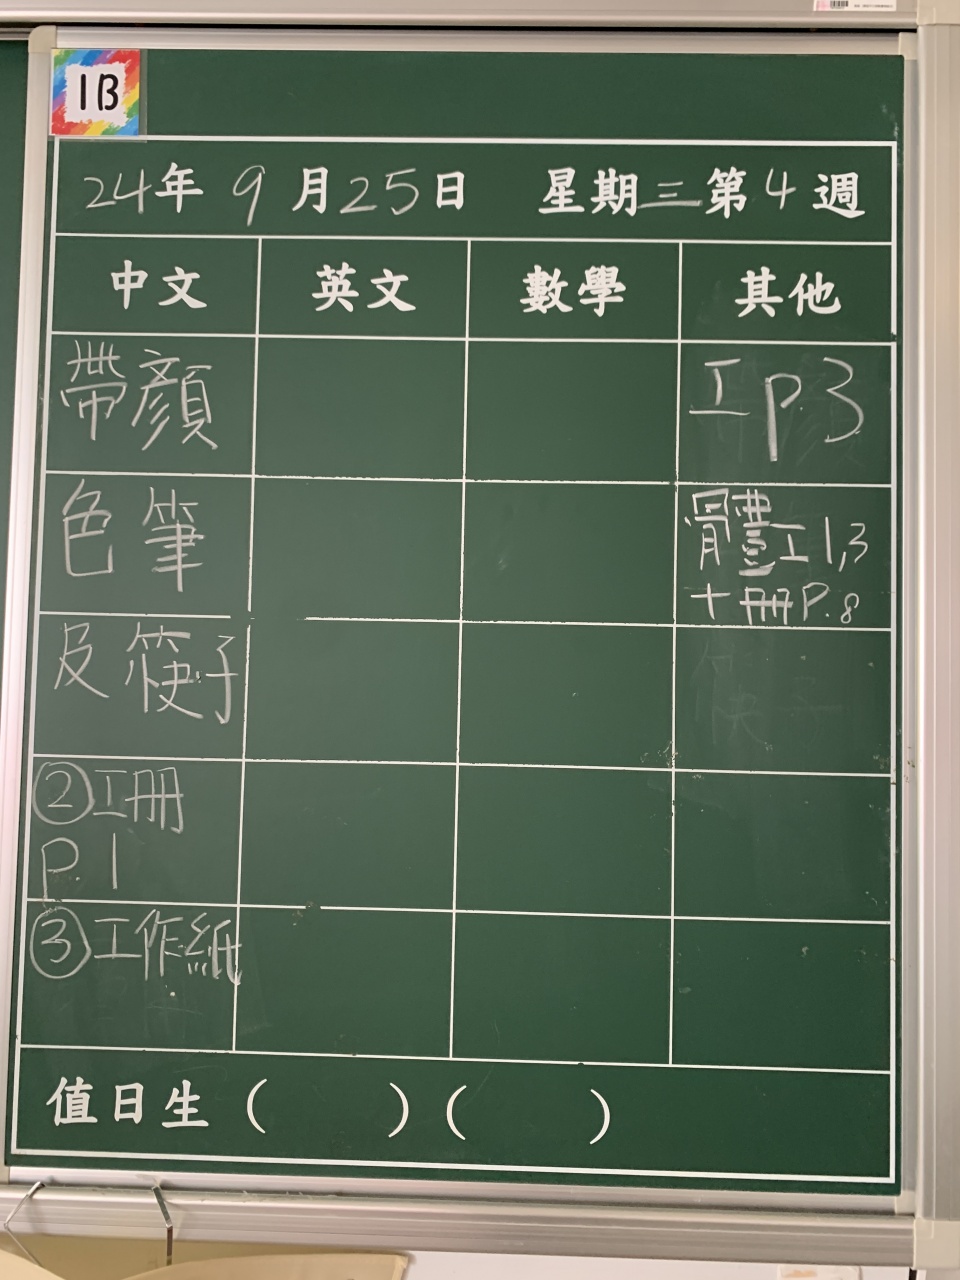 1B
24年 9月25日 星期三第4週
中文 英文 數學 其他
帶顏
色筆
及筷子
②工冊
P.1
③工作紙
工P.3
體工1,3
十冊P.8
值日生 ( ) ( )